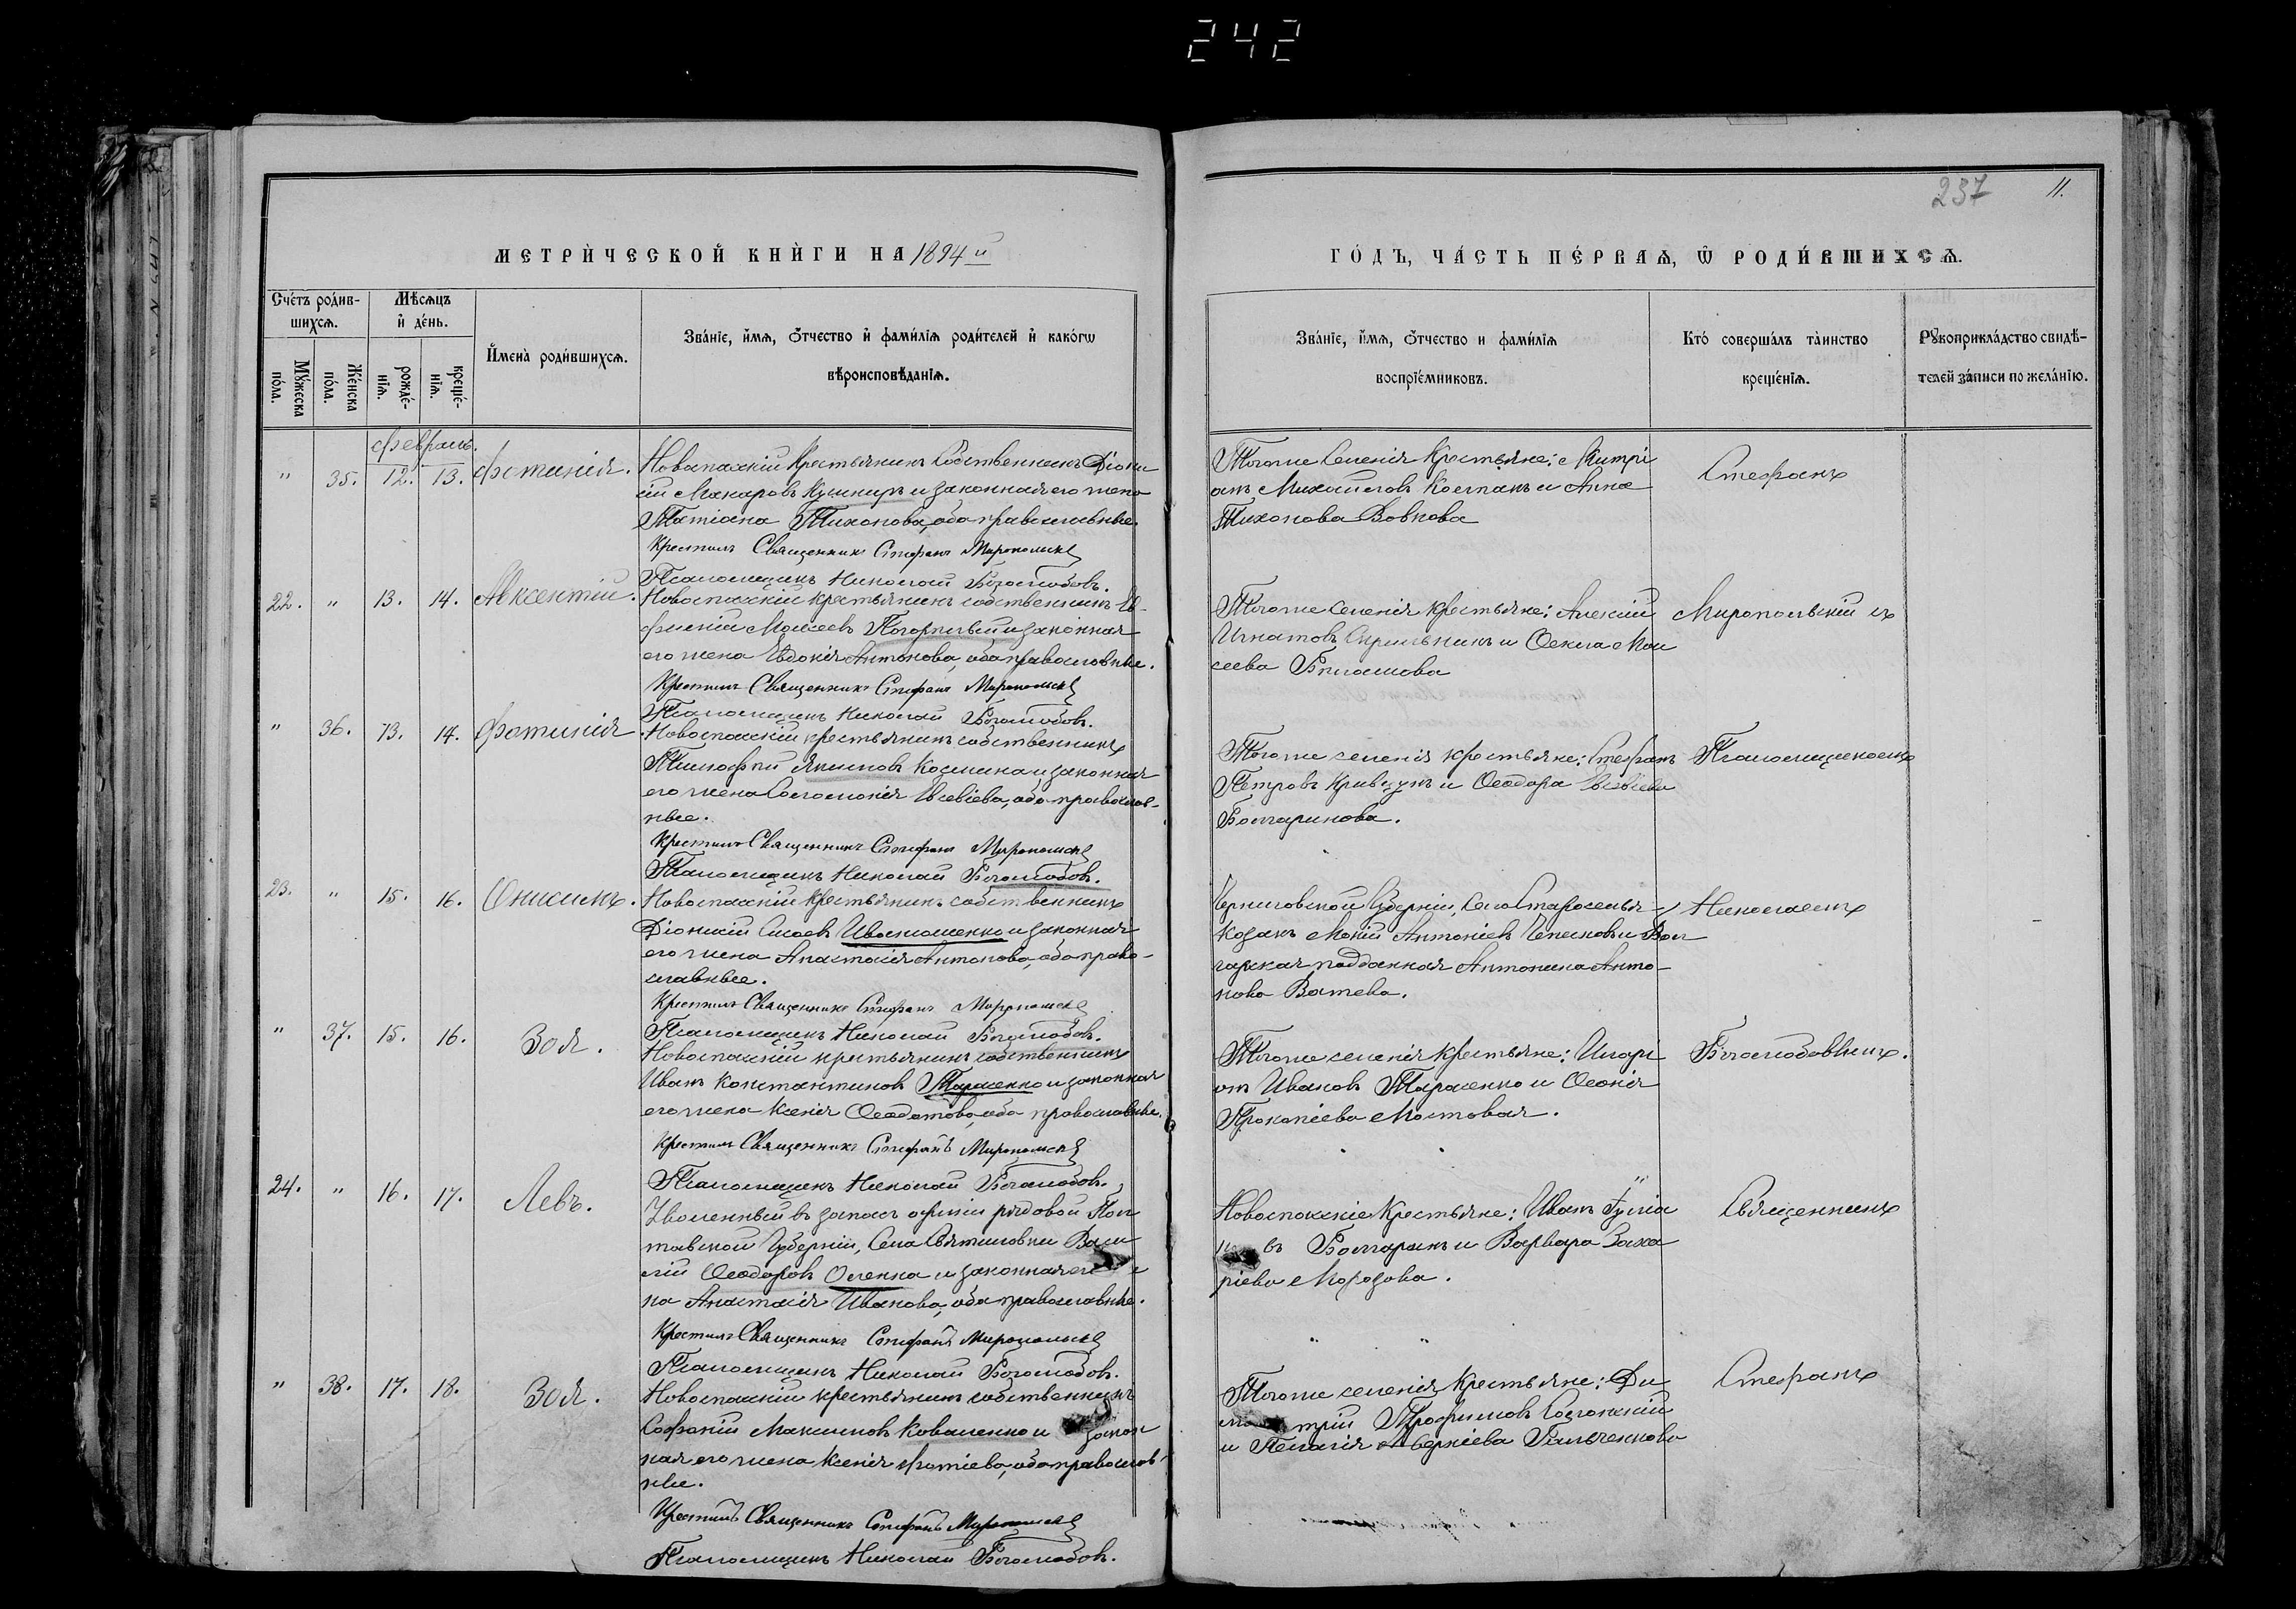 242
237 11.
МЕТРИЧЕСКОЙ КНИГИ НА 1894 й
ГОДЪ, ЧАСТЬ ПЕРВАЯ, Ѿ РОДИВШИХСЯ.
Счетъ родив-
шихся.
Мѣсяцъ
и день.
Мужеска
пола.
Женска
пола.
рожде-
нія.
креще-
нія.
Имена родившихся.
Званіе, имя, отчество и фамилія родителей и какогѡ
вѣроисповѣданія.
Званіе, имя, отчество и фамилія
воспріемниковъ.
Кто совершалъ таинство
крещенія.
Рукоприкладство свидѣ-
телей записи по желанію.
Февраль.
" 35. 12. 13. Фотинія.
Новоспаскій Крестьянинъ Собственникъ Діони
сій Макаровъ Кушниръ и законная его жена
Татіана Тихонова, оба православные.
Крестилъ Священникъ Стефанъ Миропольскій
Псаломщикъ Николай Боголюбовъ.
Тогоже Селенія Крестьяне: Митрі
анъ Михайловъ Колпакъ и Анна
Тихонова Вовкова
Стефанъ
22. " 13. 14. Авксентій.
Новоспаскій крестьянинъ собственникъ Ев-
фимій Моисеевъ Погорѣлый и законная
его жена Евдокія Антонова, оба православные.
Крестилъ Священникъ Стефанъ Миропольскій
Псаломщикъ Николай Боголюбовъ.
Тогоже селенія крестьяне: Алексій
Игнатовъ Скрыльникъ и Ѳекла Мои
сеева Бѣлашова
Миропольскій съ
" 36. 13. 14. Фотинія
Новоспаскій крестьянинъ собственникъ
Тимофей Якимовъ Космина и законная
его жена Соломонія Евсевіева, оба православ-
ные.
Крестилъ Священникъ Стефанъ Миропольскій
Псаломщикъ Николай Боголюбовъ.
Тогоже селенія крестьяне: Стефанъ
Петровъ Кривцунъ и Ѳеодора Евсевіева
Болгаринова.
Псаломщикомъ
23. " 15. 16. Онисимъ.
Новоспаскій Крестьянинъ собственникъ
Діонисій Сисоевъ Ивасишенко и законная
его жена Анастасія Антонова, оба право-
славные.
Крестилъ Священникъ Стефанъ Миропольскій
Псаломщикъ Николай Боголюбовъ.
Черниговской Губерніи, Села Староселья
Козакъ Мокій Антоніевъ и Бол
гарская подданная Антонина Анто-
нова Ватева.
Николаемъ
" 37. 15. 16. Зоя.
Новоспаскій крестьянинъ собственникъ
Иванъ Константиновъ Тарасенко и законная
его жена Ксенія Ѳеодотова, оба православные.
Крестилъ Священникъ Стефанъ Миропольскій
Псаломщикъ Николай Боголюбовъ.
Тогоже селенія крестьяне: Иларі
онъ Ивановъ Тарасенко и Ѳеонія
Прокопіева Мостовая.
Боголюбовымъ.
24. " 16. 17. Левъ.
Уволенный въ запасъ арміи рядовой Пол
тавской Губерніи, Села Святиловки Васи
лій Ѳеодоровъ Оленка и законная его
на Анастасія Иванова, оба православные.
Крестилъ Священникъ Стефанъ Миропольскій
Псаломщикъ Николай Боголюбовъ.
Новоспаскіе Крестьяне: Иванъ Іуліа
н въ Болгаринъ и Варвара Заха
ріева Морозова.
Священникъ
" 38. 17. 18. Зоя.
Новоспаскій крестьянинъ собственникъ
Софоній Максимовъ Коваленко и закон
ная его жена Ксенія Фотіева, оба православ-
ные.
Крестилъ Священникъ Стефанъ Миропольскій
Псаломщикъ Николай Боголюбовъ.
Тогоже селенія Крестьяне: Ди
трій Трофимовъ
и Пелагія Аверкіева
Стефанъ